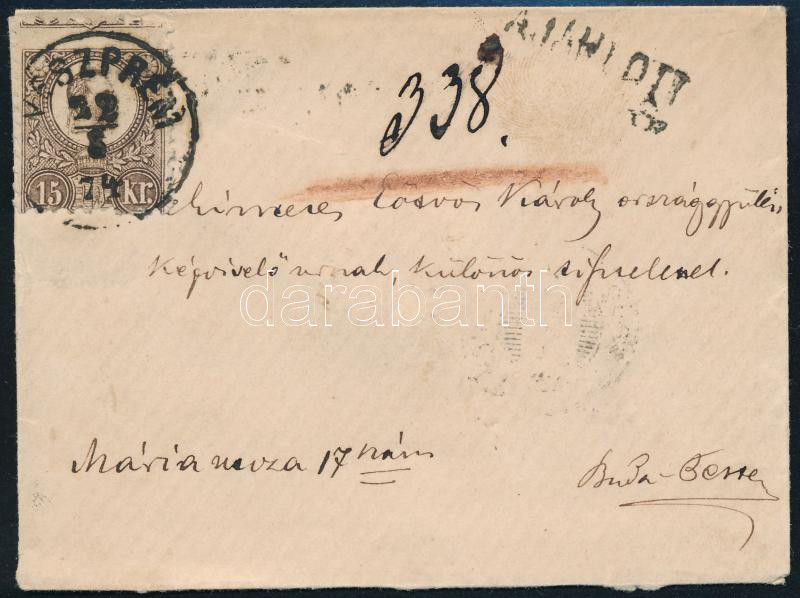 VESZPRÉM
22
6
74
15 Kr.
AJÁNLOTT
338.
Eötvös Károly országgyűlési
Képviselő urnak, különös tisztelettel.
darabanth
Mária utcza 17 szám
Buda-Pesten